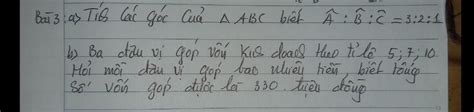 Bài 3: a) Tính các góc của △ ABC biết Â : B̂ : Ĉ = 3:2:1
b) Ba đơn vị góp vốn kinh doanh theo tỉ lệ 5; 7; 10.
Hỏi mỗi đơn vị góp bao nhiêu tiền biết tổng
số vốn góp được là 330 triệu đồng